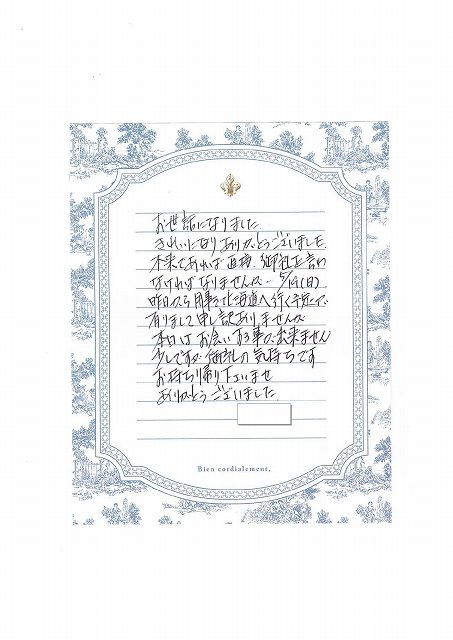 お世話になりました.
きれいになりありがとうございました.
本来であれば直接.御礼を言わ
なければなりませんが.5/19(日)
昨日から用事で北海道へ行く予定で
有りまして申し訳ありませんが
本日はお会いする事が出来ません
少しですが御礼の気持ちです
お持ち帰り下いませ
ありがとうございました.
Bien cordialement,